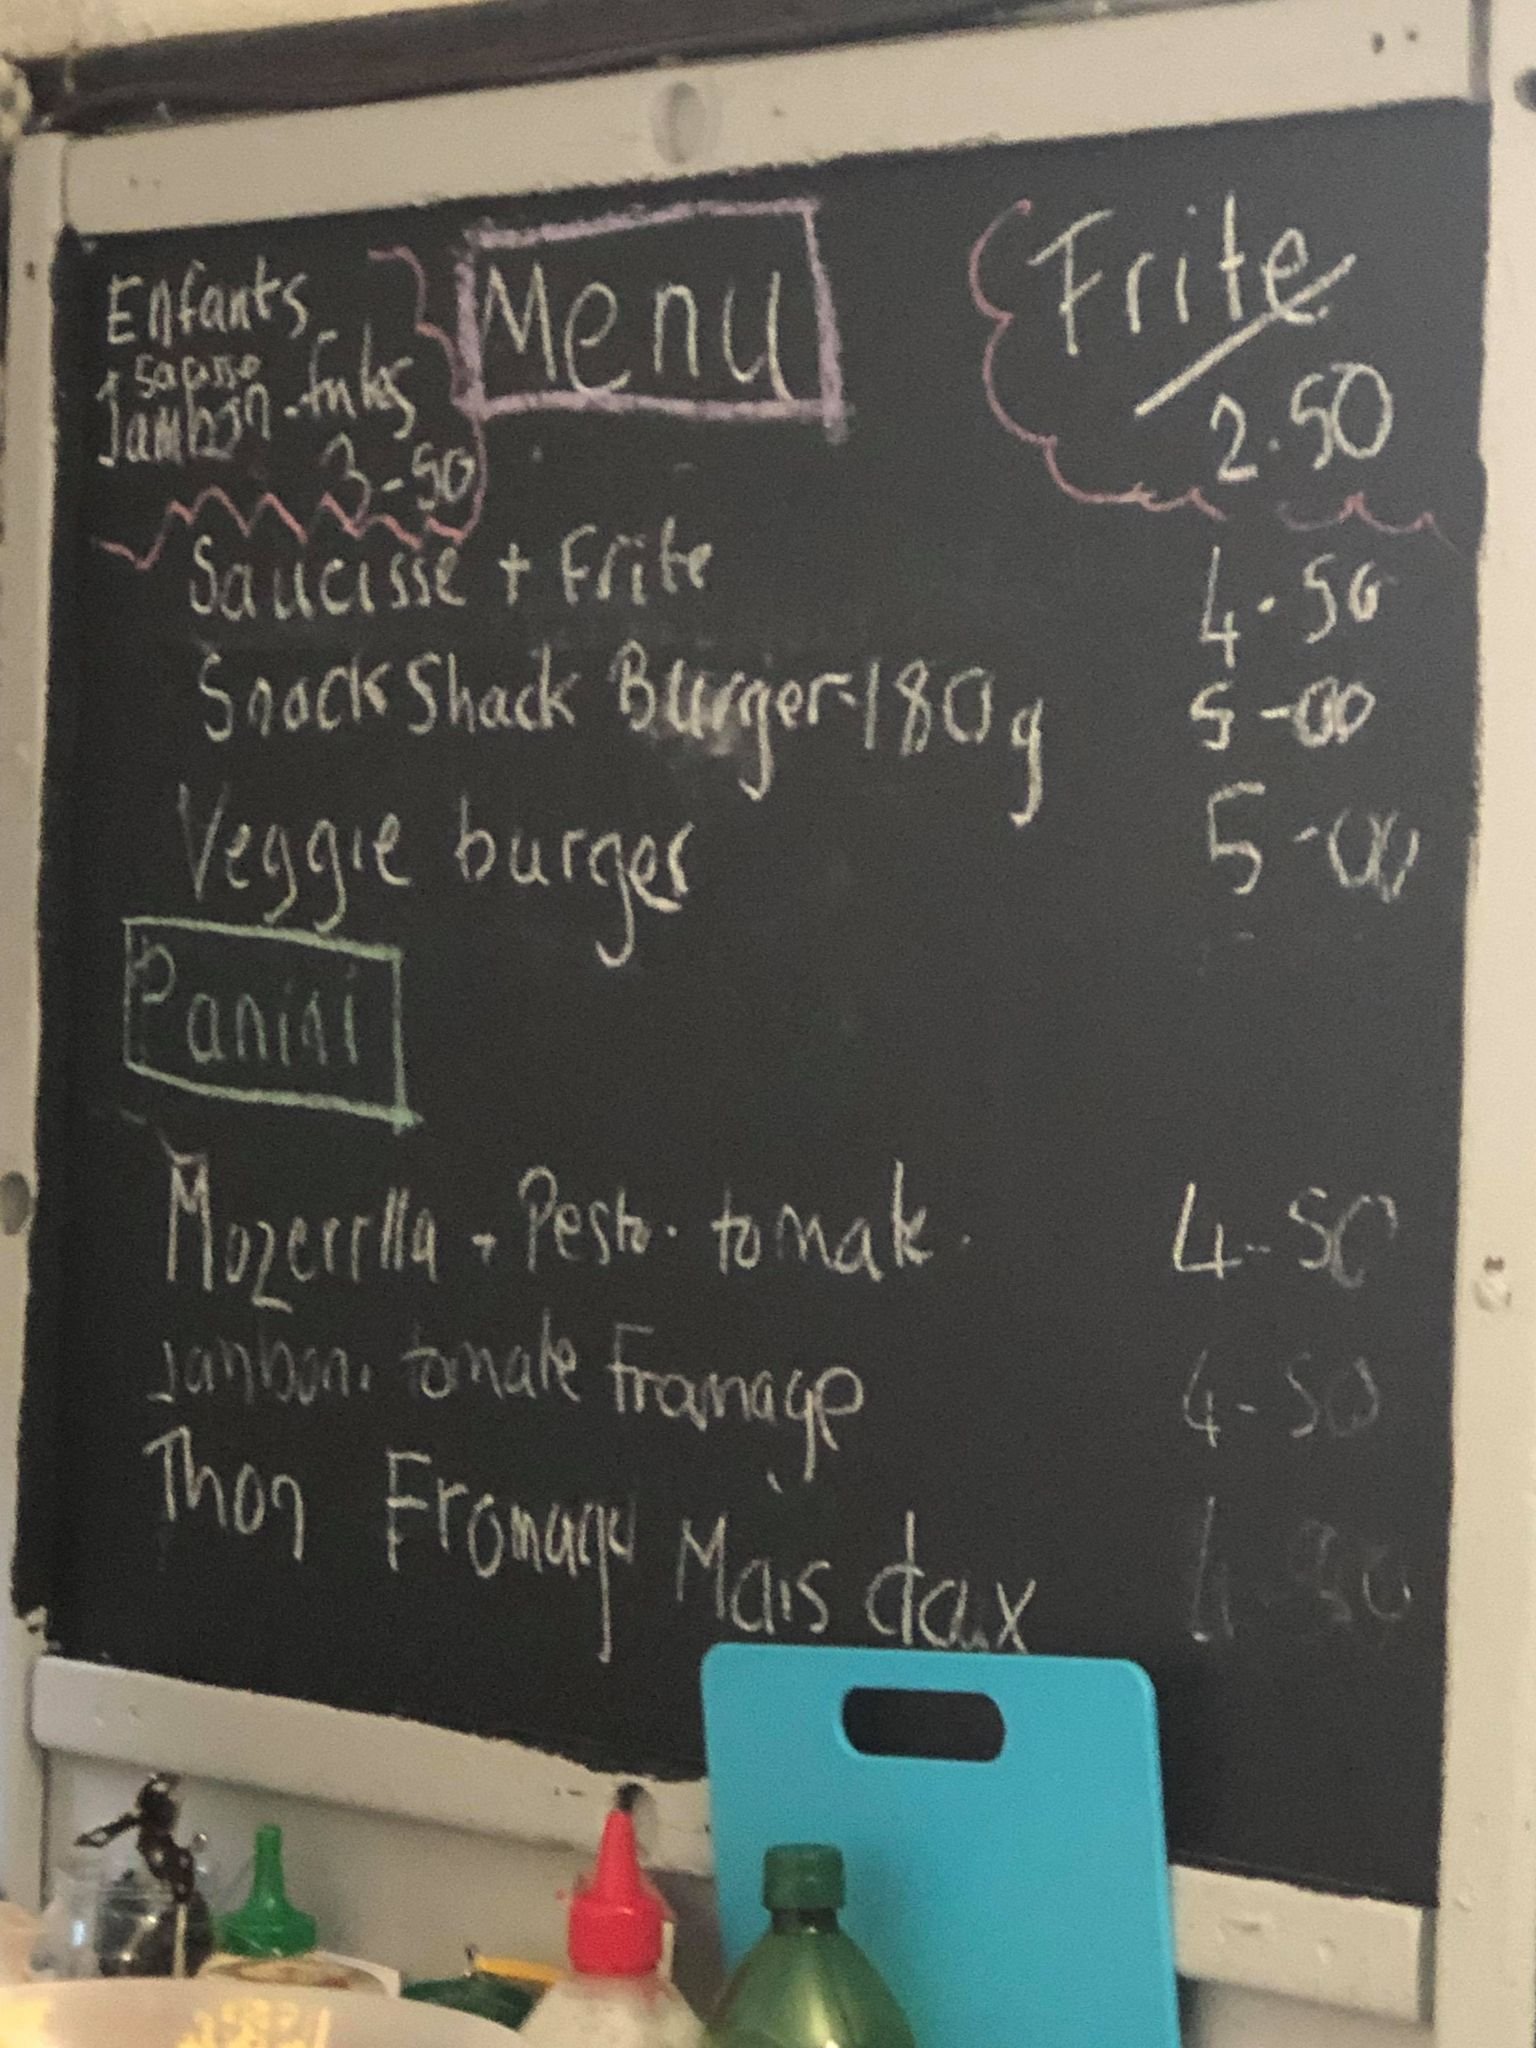 Enfants
Sacisse
Jambon-frites
3-50
Menu
Frite
2.50
Saucisse + Frite 4-50
Snack Shack Burger-180g 5-00
Veggie burger 5-00
Panini
Mozerrlla + Pesto. tomate. 4-50
Jambon. tomate Fromage 4-50
Thon Fromage Mais doux 4-50